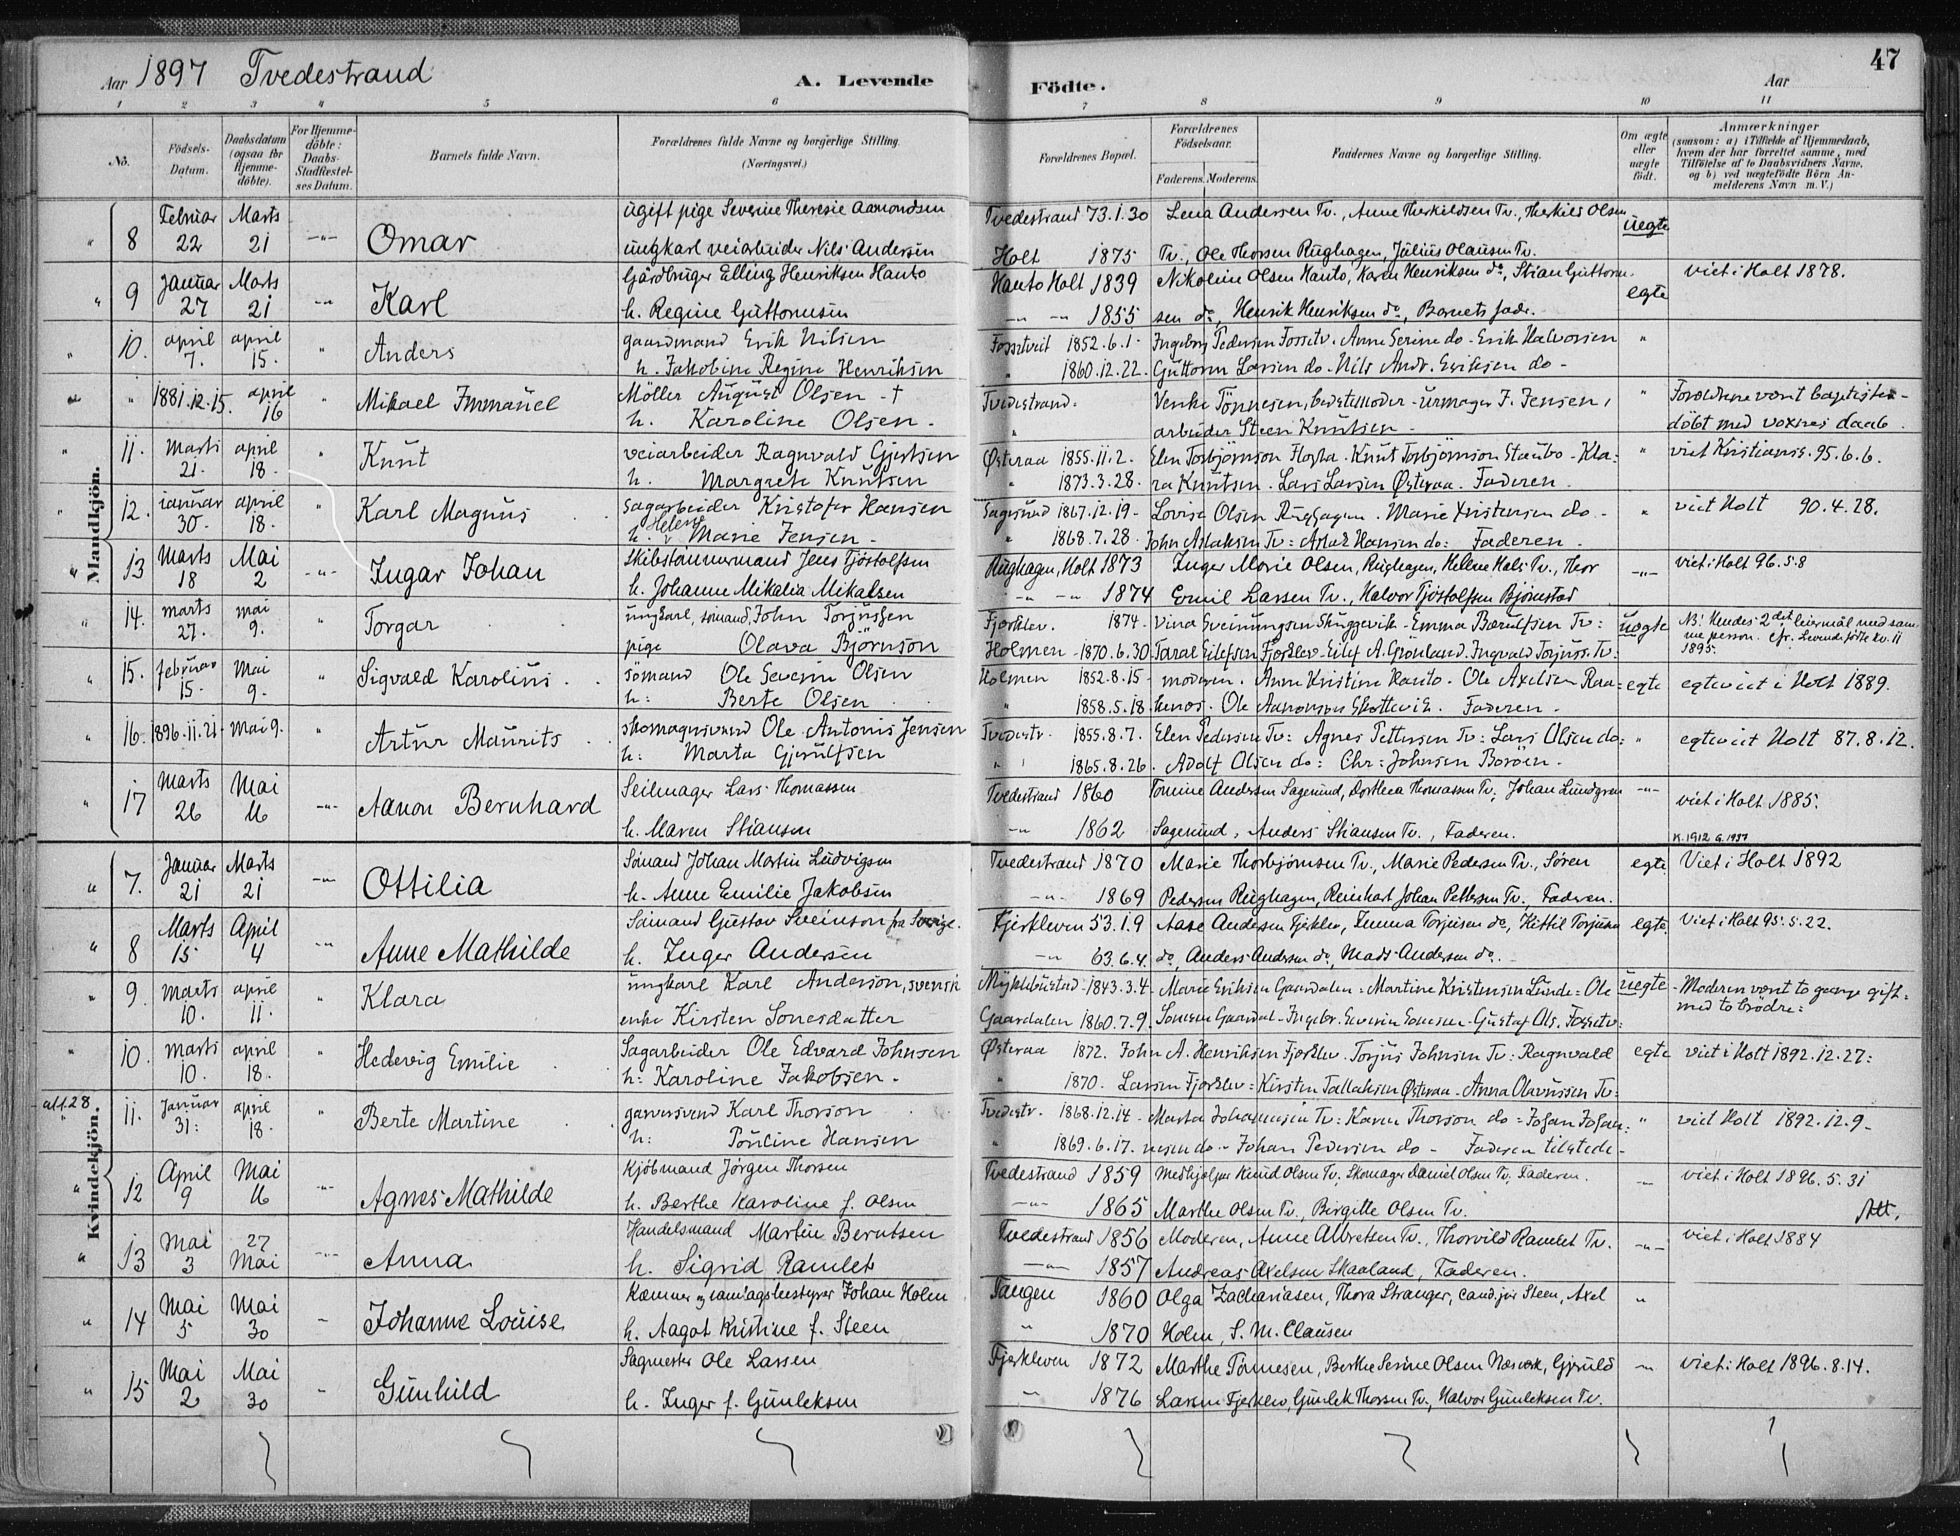 Aar 1897 Tvedestrand A. Levende Födte. Aar 47
1 2 3 4 5 6 7 8 9 10 11
No. Födsels-Datum. Daabsdatum (ogsaa for Hjemme-döbte). For Hjemme-döbte: Daabs-Stadfæstel-ses Datum. Barnets fulde Navn. Forældrenes fulde Navne og borgerlige Stilling. (Næringsvei.) Forældrenes Bopæl. Forældrenes Födselsaar. Faderens. Moderens. Faddernes Navne og borgerlige Stilling. Om ægte eller uægte födt. Anmærkninger (saasom: a) i Tilfælde af Hjemmedaab, hvem der har forrettet samme, med Tilföielse af to Daabsvidners Navne, og b) ved uægtefödte Börn An-melderens Navn m. V.)
Mandkjön.
Februar Marts ugift pige Severine Theresie Aamondsen Tvedestrand 73.1.30 Lena Andersen Tv., Anne Therkildsen Tv., Therkild Olsen uegte
" 8 22 21 -"- Omar ungkarl veiarbeider Nils Andersen Holt 1875 Tv., Ole Thorsen Rughagen, Julius Olausen Tv.
Januar Marts Gårdbruger Elling Henriksen Hauto Hauto Holt 1839 Nikoline Olsen Hauto, Karen Henriksen do, Stian Guttorm- egte viet i Holt 1878.
" 9 27 21 -"- Karl h. Regine Guttormsen -"- -"- 1855 sen do, Henrik Henriksen do, Barnets fader.
" 10. april april " Anders gaardmand Erik Nilsen Fossetveit 1852.6.1- Ingeborg Pedersen Fossetv. Anne Serine do - Erik Halvorsen "
7. 15. h. Jakobine Regine Henriksen " 1860.12.22. Guttorm Larsen do. Nils Andr. Eriksen do -
" 1881.12.15. april 16 " Mikael Immanuel Möller August Olsen - † Tvedestrand. Venke Tönnesen, bedstemoder - urmager J. Jensen, " Forældrene vært baptister -
h. Karoline Olsen. " arbeider Steen Knutsen - döbt med voxnes daab.
" 11. Marts april " Knut veiarbeider Ragnvald Gjertsen Østeraa 1855.11.2. Elen Torbjörnson Flosta - Knut Torbjörnson Staubo - Kla: " viet Kristians. 95.6.6.
21. 18. h. Margrete Knutsen " 1873.3.28. ra Knutsen. Lars Larsen Østeraa. Faderen.
" 12. januar april " Karl Magnus Sagarbeider Kristofer Hansen Sagesund 1867.12.19- Lovise Olsen Rughagen. Marie Kristensen do - " viet Holt 90.4.28.
30. 18. h. Helene Marie Jensen. " 1868.7.28. John Aslaksen Tv: Aslak Hansen do: Faderen.
" 13 Marts Mai -"- Ingar Johan Skibstømmermand Jens Tjöstolfsen Rughagen, Holt 1873 Inger Marie Olsen, Rughagen, Helene Hals Tv., Thor -"- viet i Holt 96.5.8
18 2 h. Johanne Mikalea Mikalsen -"- -"- 1874 Emil Larsen Tv., Halvor Tjöstolfsen Bjönstad
" 14. marts mai " Torgar ungkarl, sömand, John Torjussen Fjærklev. 1874. Vina Sveinungsen Skuggevik - Emma Børulfsen Tv: uægte NB! Hendes 2det leiermål med sam-
27. 9. pige Olava Björnson Holmen -1870.6.30 Taral Eilefsen Fjerklev - Eilef A. Grönland. Ingvald Torjuss. Tv: me person. cfr. Levendefödte kv. 11 1895.
" 15. februar Mai " Sigvald Karolius sömand Ole Severin Olsen Holmen 1852.8.15 - moderen. Anne Kristine Hauto. Ole Axelsen Raa= egte egteviet i Holt 1889.
15. 9. h: Berte Olsen " 1858.5.18. Ole Aanonsen Skottevik. Faderen.
" 16. 1896.11.21 Mai 9. Artur Maurits skomagersvend Ole Antonis Jensen Tvedestr. 1855.8.7. Elen Pedersen Tv: Agnes Pettersen Tv: Lars Olsen do: " egteviet Holt 87.8.12.
h: Marta Gjerulfsen " 1865.8.26. Adolf Olsen do: Chr: Johnsen Boröen.
" 17 Marts Mai -"- Aanon Bernhard Seilmager Lars Thomassen Tvedestrand 1860 Tomine Andersen Sagesund, Dorthea Thomassen Tv, Johan Lundgren -"- viet i Holt 1885.
26 16 h. Maren Stiansen -"- 1862 Sagesund, Anders Stiansen Tv., Faderen. K.1912 G.1937
Kvindekjön.
" 7. Januar Marts -"- Ottilia Sömand Johan Martin Ludvigsen Tvedestrand 1870 Marie Thorbjørnsen Tv., Marie Pedersen Tv., Søren egte Viet i Holt 1892
21 21 h. Anne Emilie Jakobsen -"- 1869 Pedersen Rughagen, Reinhart Johan Pettersen Tv., Faderen.
" 8 Marts April -"- Anne Mathilde Sömand Gustav Sveinson fra Sverige. Fjerkleven 53.1.9 Aase Andersen Fjerklev, Emma Torjusen do, Kittil Torjusen egte. Viet i Holt 95.5.22.
15 4 h. Inger Andersen -"- 63.6.4. do, Anders Andersen do, Mads Andersen do.
" 9. Marts april " Klara ungkarl Karl Anderson, svensk Myklebustad - 1843.3.4. Marie Eriksen Gaardalen = Martine Kristensen Lunde = Ole uegte - Moderen vært to gange gift =
10. 11. enke Kirsten Sonesdatter Gaardalen 1860.7.9. Sonesen Gaardal - Ingebr. Severin Sonesen - Gustaf Ols. Fossetv: med to brödre:
" 10. Marts april " Hedevig Emilie Sagarbeider Ole Edvard Johnsen Østeraa 1872. John A. Henriksen Fjerklev. Torjus Johnsen Tv: Ragnvald egte viet i Holt 1892.12.27:
10. 18. h: Karoline Jakobsen. " 1870. Larsen Fjerklev = Kirsten Tallaksen Østeraa - Anna Olavussen Tv:
att.28 " 11. Januar april Berte Martine garversvend Karl Thorson Tvedestr. 1868.12.14 - Marta Johannesen Tv: Karen Thorson do = Johan Johan: " viet Holt 1892.12.9-
31: 18. h: Pouline Hansen " 1869.6.17. nesen do - Johan Pedersen do - Faderen tilstede -
" 12 April Mai -"- Agnes Mathilde Kjöbmand Jörgen Thorsen Tvedestrand 1859 Medhjelper Knud Olsen Tv., Skomager Daniel Olsen Tv., Faderen. -"- viet i Holt 1896.5.31
9 16 h. Berthe Karoline f. Olsen -"- 1865 Marthe Olsen Tv., Birgitte Olsen Tv. Att.
" 13 Mai 27 -"- Anna Handelsmand Martin Berntsen Tvedestrand 1856 Moderen, Anne Albretsen Tv., Thorvild Ramlet Tv. -"- viet i Holt 1884
3 Mai h. Sigrid Ramlet -"- 1857 Andreas Axelsen Skaaland, Faderen.
" 14 Mai Mai - Johanne Louise Kæmner og samlagsbestyrer Johan Holm Tangen 1860 Olga Zachariasen, Thora Stranger, cand. jur Steen, Axel "
5 30 h. Aagot Kristine f. Steen " 1870 Holm, S. M. Clausen
" 15 Mai Mai - Gunhild Sagmester Ole Larsen Fjerkleven 1872 Marthe Tönnesen, Berthe Serine Olsen Næsverk, Gjeruld -"- viet i Holt 1896.8.14.
2 30 h. Inger f. Gunleksen -"- 1876 Larsen Fjerklev, Gunlek Thorsen Tv., Halvor Gunleksen Tv.